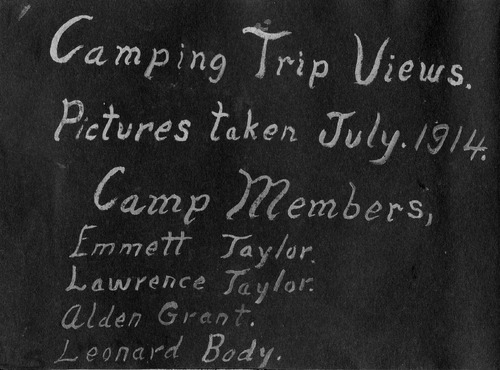 Camping Trip Views.
Pictures taken July. 1914.
Camp Members,
Emmett Taylor.
Lawrence Taylor.
Alden Grant.
Leonard Body.